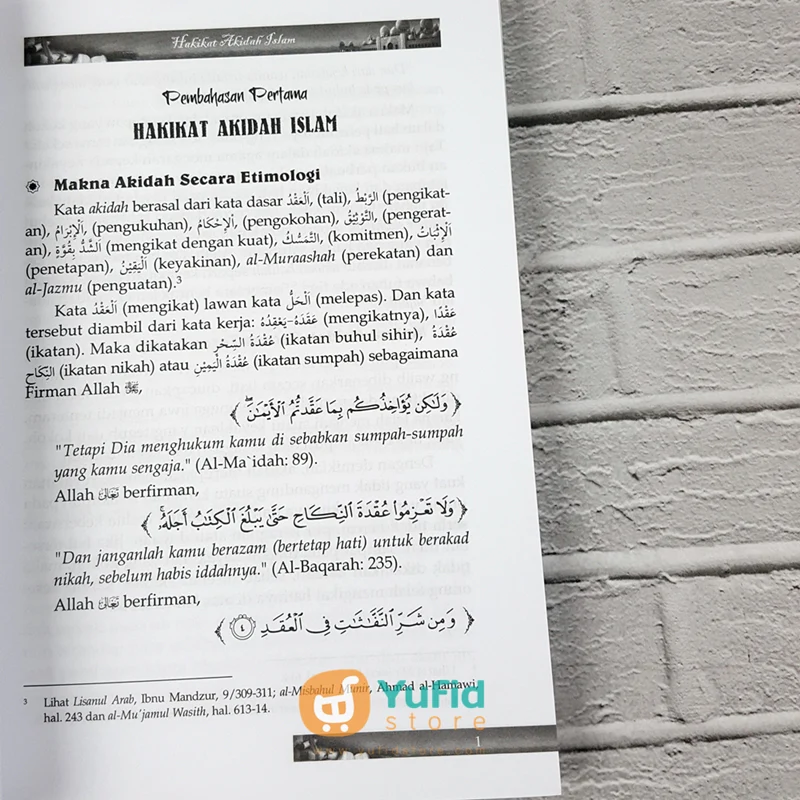 Hakikat Akidah Islam
Pembahasan Pertama
HAKIKAT AKIDAH ISLAM
Makna Akidah Secara Etimologi
Kata akidah berasal dari kata dasar اَلْعَقْدُ, (tali), الرَّبْطُ (pengikat-
an), اَلْإِبْرَامُ, (pengukuhan), اَلْإِحْكَامُ, (pengokohan), التَّوْثِيْقُ, (pengerat-
an), اَلشَّدُّ بِقُوَّةٍ (mengikat dengan kuat), التَّمَسُّكُ, (komitmen), اَلْإِثْبَاتُ
(penetapan), اَلْيَقِيْنُ (keyakinan), al-Muraashah (perekatan) dan
al-Jazmu (penguatan).3
Kata اَلْعَقْدُ (mengikat) lawan kata اَلْحَلُّ (melepas). Dan kata
tersebut diambil dari kata kerja: عَقَدَهُ-يَعْقِدُهُ (mengikatnya), عَقْدًا
(ikatan). Maka dikatakan عُقْدَةُ السِّحْرِ (ikatan buhul sihir), عُقْدَةُ
النِّكَاحِ (ikatan nikah) atau عُقْدَةُ الْيَمِيْنِ (ikatan sumpah) sebagaimana
Firman Allah ﷻ,
﴿ وَلَٰكِن يُؤَاخِذُكُم بِمَا عَقَّدتُّمُ ٱلْأَيْمَٰنَ ۖ ﴾
"Tetapi Dia menghukum kamu di sebabkan sumpah-sumpah
yang kamu sengaja." (Al-Ma`idah: 89).
Allah تَعَالَى berfirman,
﴿ وَلَا تَعْزِمُوا۟ عُقْدَةَ ٱلنِّكَاحِ حَتَّىٰ يَبْلُغَ ٱلْكِتَٰبُ أَجَلَهُۥ ۚ ﴾
"Dan janganlah kamu berazam (bertetap hati) untuk berakad
nikah, sebelum habis iddahnya." (Al-Baqarah: 235).
Allah تَعَالَى berfirman,
﴿ وَمِن شَرِّ ٱلنَّفَّٰثَٰتِ فِى ٱلْعُقَدِ ٤ ﴾
3 Lihat Lisanul Arab, Ibnu Mandzur, 9/309-311; al-Misbahul Munir, Ahmad al-Hamawi,
hal. 243 dan al-Mu'jamul Wasith, hal. 613-14.
YuFid
store
1